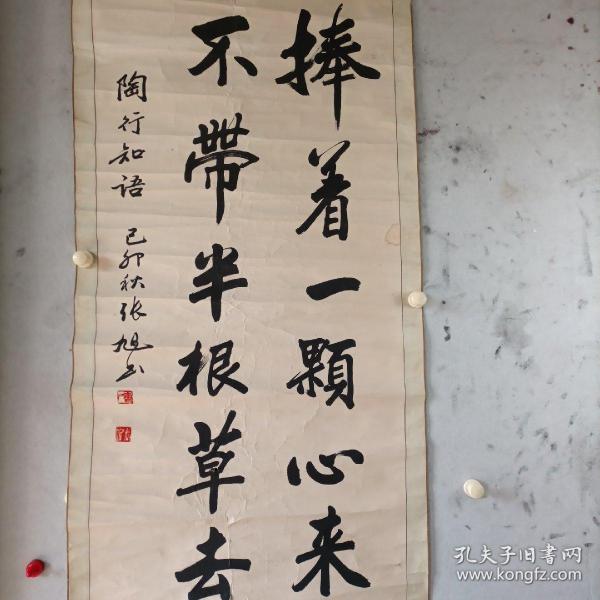 捧着一顆心来
不帶半根草去
陶行知语 己卯秋 张旭书
孔夫子旧书网
www.kongfz.com